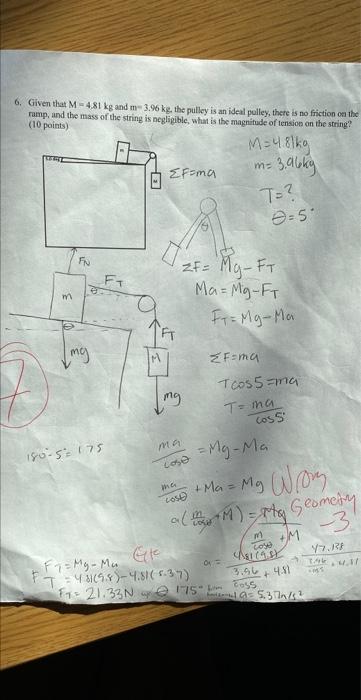 6. Given that M = 4.81 kg and m= 3.96 kg, the pulley is an ideal pulley, there is no friction on the
ramp, and the mass of the string is negligible, what is the magnitude of tension on the string?
(10 points)
M=4.81kg
m= 3.96kg
ΣF=ma
T=?
θ=5°
θ
FN
FT
θ
m
ΣF= Mg-FT
Ma=Mg-FT
FT=Mg-Ma
FT
M
mg
mg
ΣF=ma
Tcos5=ma
T= ma/cos5°
7
180-5=175
ma/cosθ = Mg-Ma
ma/cosθ + Ma = Mg
Wrong
Geometry
-3
a(m/cosθ + M) = Mg
m/cosθ + M
FT=Mg-Ma
FT = 4.81(9.8)-4.81(5.37)
FT= 21.33N
175°
a= 4.81(9.8) / 3.96/cos5 + 4.81
a= 5.37m/s²